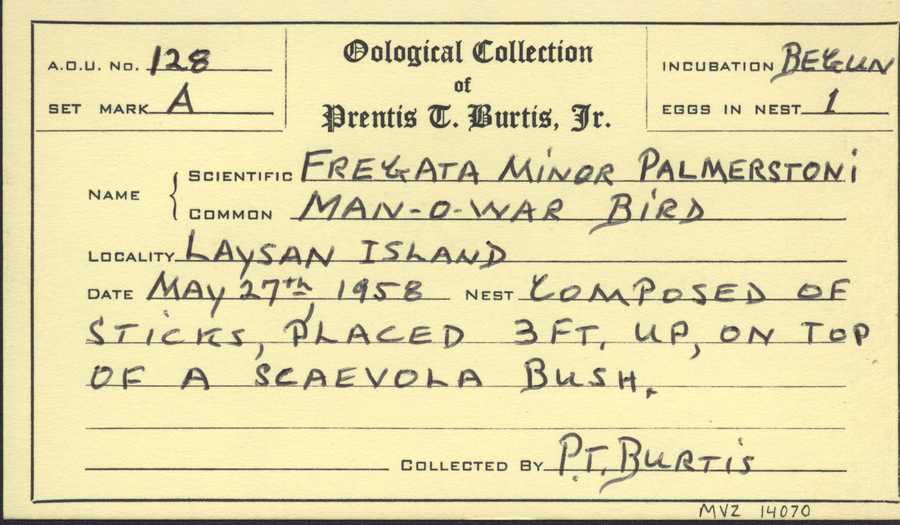 A.O.U. No. 128
SET MARK A
Oological Collection
of
Prentis T. Burtis, Jr.
INCUBATION BEGUN
EGGS IN NEST 1
NAME
SCIENTIFIC FREGATA MINOR PALMERSTONI
COMMON MAN-O-WAR BIRD
LOCALITY LAYSAN ISLAND
DATE MAY 27th, 1958 NEST COMPOSED OF
STICKS, PLACED 3 FT. UP, ON TOP
OF A SCAEVOLA BUSH.
COLLECTED BY P.T. BURTIS
MVZ 14070